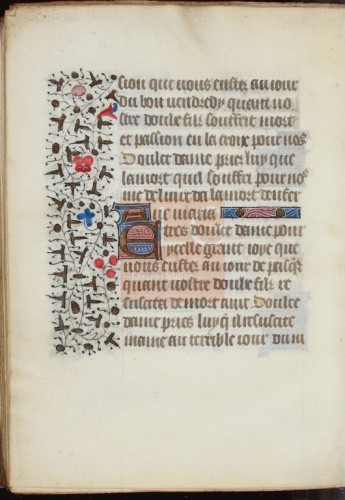 cion que vous eustes au iour
du bon vendredy quant no
stre doulz filz souffrit mort
et passion en la croix pour nos
Doulce dame pries luy que
la mort quil souffri pour no
me deliure de la mort denfer
Aue maria
tres doulce dame pour
ycelle grant ioye que
vous eustes au iour de pasqs
quant vostre doulz filz re
suscita de mort auie Doulce
dame pries luy qil resuscite
mame au terrible iour du iu